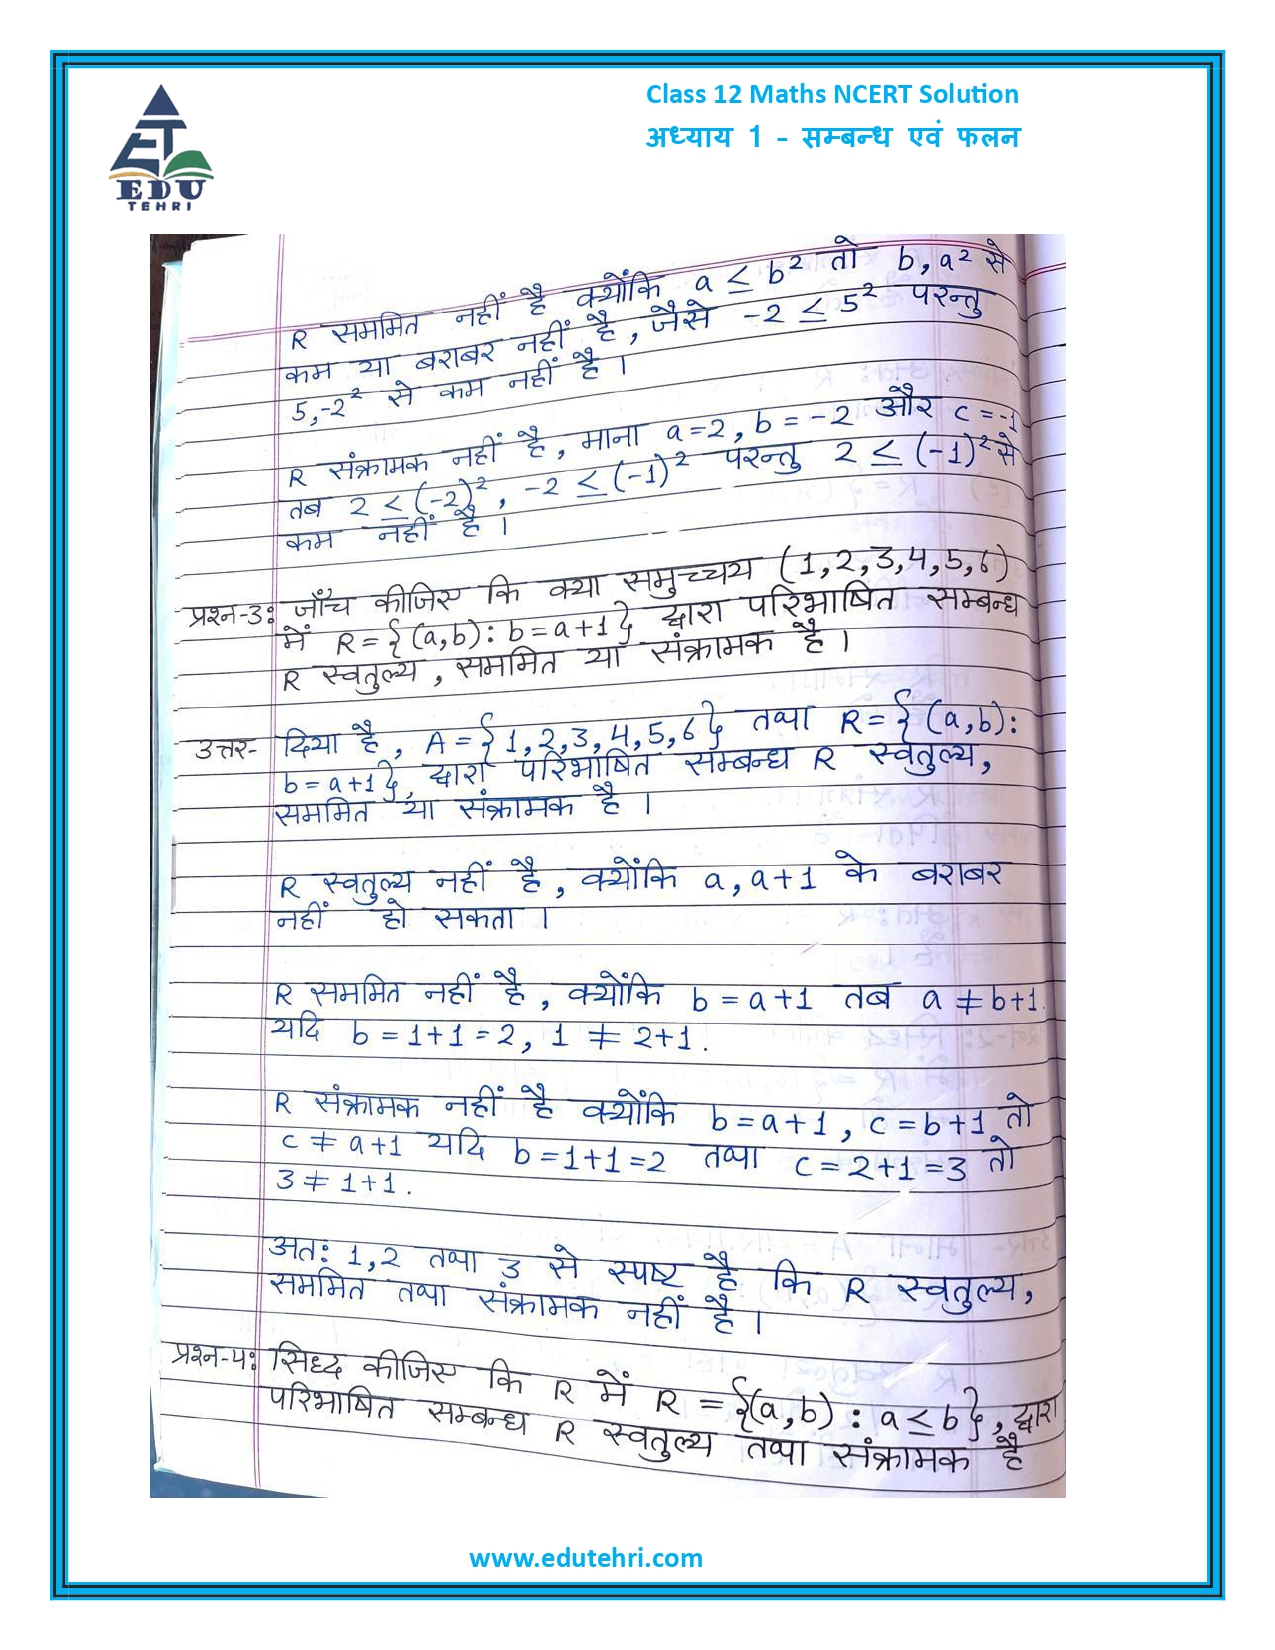 Class 12 Maths NCERT Solution
अध्याय 1 - सम्बन्ध एवं फलन
ET
EDU
TEHRI
R सममित नहीं है क्योंकि a ≤ b² तो b, a² से
कम या बराबर नहीं है, जैसे -2 ≤ 5² परन्तु
5, -2² से कम नहीं है ।
R संक्रामक नहीं है, माना a=2, b = -2 और c = -1
तब 2 ≤ (-2)², -2 ≤ (-1)² परन्तु 2 ≤ (-1)² से
कम नहीं है ।
प्रश्न-3: जाँच कीजिए कि क्या समुच्चय (1,2,3,4,5,6)
में R = {(a,b): b = a+1} द्वारा परिभाषित सम्बन्ध
R स्वतुल्य, सममित या संक्रामक है ।
उत्तर- दिया है, A = {1,2,3,4,5,6} तथा R = {(a,b):
b = a+1}, द्वारा परिभाषित सम्बन्ध R स्वतुल्य,
सममित या संक्रामक है ।
R स्वतुल्य नहीं है, क्योंकि a, a+1 के बराबर
नहीं हो सकता ।
R सममित नहीं है, क्योंकि b = a+1 तब a ≠ b+1.
यदि b = 1+1 = 2, 1 ≠ 2+1.
R संक्रामक नहीं है क्योंकि b = a+1, c = b+1 तो
c ≠ a+1 यदि b = 1+1 = 2 तथा c = 2+1 = 3 तो
3 ≠ 1+1.
अतः 1, 2 तथा 3 से स्पष्ट है कि R स्वतुल्य,
सममित तथा संक्रामक नहीं है ।
प्रश्न-4: सिध्द कीजिए कि R में R = {(a,b) : a ≤ b}, द्वारा
परिभाषित सम्बन्ध R स्वतुल्य तथा संक्रामक है
www.edutehri.com